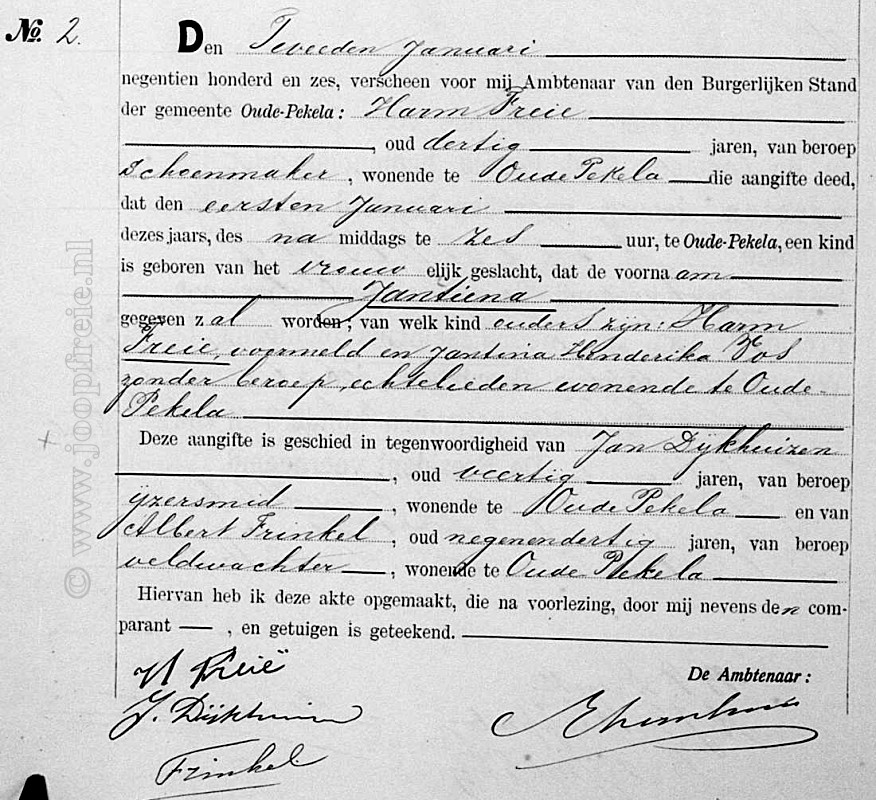 No. 2.
Den Tweeden Januari
negentien honderd en zes, verscheen voor mij Ambtenaar van den Burgerlijken Stand
der gemeente Oude-Pekela: Harm Freie
, oud dertig jaren, van beroep
Schoenmaker, wonende te Oude Pekela die aangifte deed,
dat den eersten Januari
dezes jaars, des na middags te zes uur, te Oude-Pekela, een kind
is geboren van het vrouw elijk geslacht, dat de voorna am
Jantiena
gegeven z al worden; van welk kind ouders zijn: Harm
Freie, voormeld en Jantina Henderika Vos
zonder beroep, echtelieden wonende te Oude-
Pekela
Deze aangifte is geschied in tegenwoordigheid van Jan Dijkhuizen
, oud veertig jaren, van beroep
ijzersmid, wonende te Oude Pekela en van
Albert Frinkel, oud negenendertig jaren, van beroep
veldwachter, wonende te Oude Pekela
Hiervan heb ik deze akte opgemaakt, die na voorlezing, door mij nevens den com-
parant, en getuigen is geteekend.
H Freië
De Ambtenaar:
J. Dijkhuizen
Frinkel
© www.joopfreie.nl